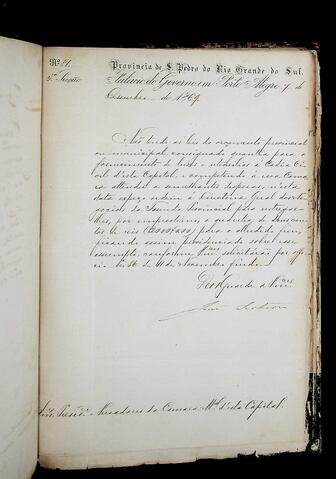 Nº 81.
Provincia de S. Pedro do Rio Grande do Sul.
2ª Secção Palacio do Governo em Porto Alegre 7 de
Dezembro de 1869.
Não tendo as leis do orçamento provincial
ou municipal consignado quantia para o
fornecimento de luzes e utensilios á Cadêa Ci
vil d'esta Capital, e competindo á essa Cama
ra attender a semelhantes despezas, n'esta
data expeço ordem á Directoria Geral dos ne
gocios da Fazenda Provincial para entregar
lhes, por emprestimo, a quantia de duscen
tos de reis para o alludido fim,
ficando assim providenciado sobre esse
assumpto, conforme Vm.ces solicitarão por offi
cio Nº 56 de 11 de Novembro findo.
Deus Guarde a Vm.ces
Vereadores da Camara Mal d'esta Capital.